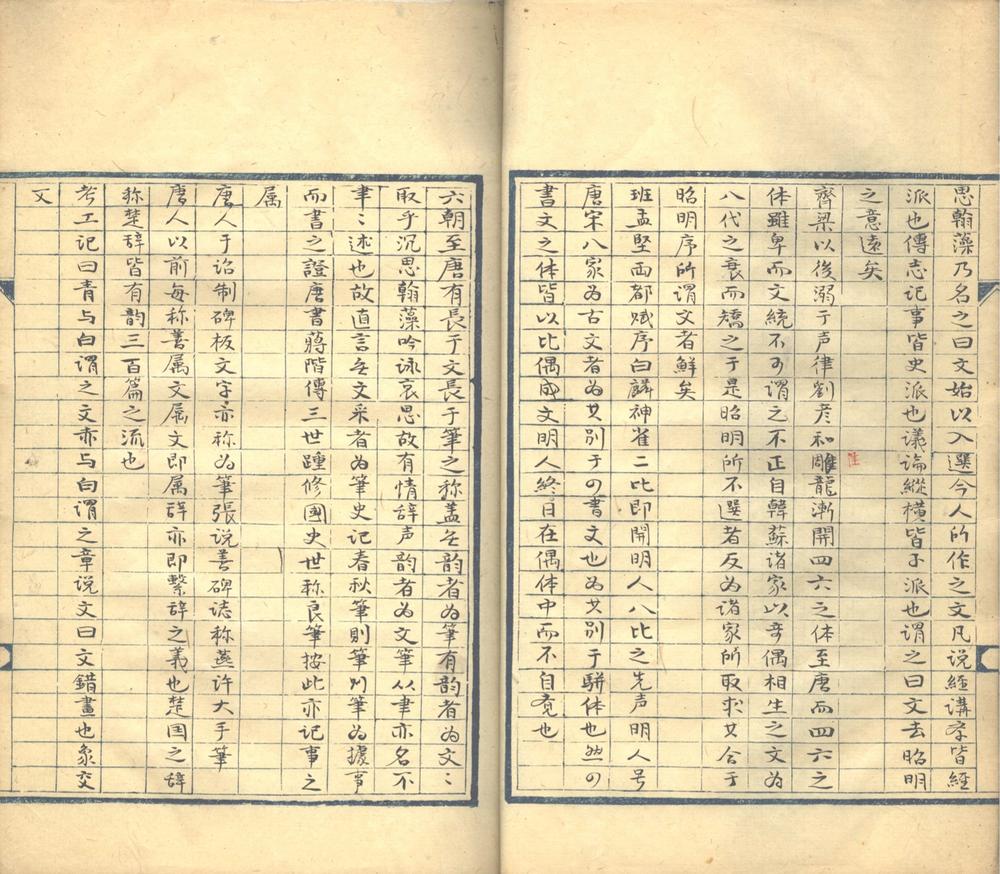 思翰藻乃名之曰文始以入選今人所作之文凡说经講学皆經
派也傳志记事皆史派也议論縱横皆子派也謂之曰文去昭明
之意遠矣
齊梁以後溺于声律劉彦和雕龍漸開四六之体至唐而四六之
体雖卑而文統不可謂之不正自韓蘇诸家以奇偶相生之文为
八代之衰而矯之于是昭明所不選者反为诸家所取求其合于
昭明序所謂文者鮮矣
班孟堅两都赋序白麟神雀二比即開明人八比之先声明人号
唐宋八家为古文者为其别于四書文也为其别于駢体也然四
書文之体皆以比偶成文明人終日在偶体中而不自覔也
六朝至唐有長于文長于筆之称盖无韵者为筆有韵者为文〻
取乎沉思翰藻吟詠哀思故有情辞声韵者为文筆从聿亦名不
聿〻述也故直言无文采者为筆史记春秋筆則筆〻为據事
而書之證唐書蒋偕傳三世踵修國史世称良筆按此亦记事之
属
唐人于诏制碑板文字亦称为筆张说善碑誌称燕许大手筆
唐人以前每称善属文属文即属辞亦即繫辞之義也楚国之辞
称楚辞皆有韵三百篇之流也
考工记曰青与白謂之文赤与白謂之章说文曰文錯畫也象交
文